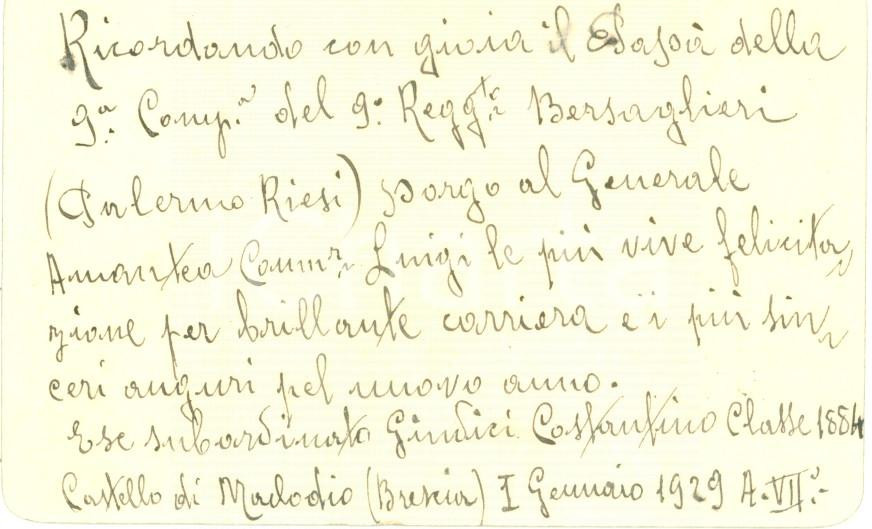 Ricordando con gioia il Papà della
9ª Comp.ª del 9º Reggto Bersaglieri
(Palermo Riesi) porgo al Generale
Amantea Commr. Luigi le più vive felicita,,
zione per brillante carriera e i più sin,,
ceri auguri pel nuovo anno.
Ese subordinato Giudici Costantino Classe 1884
Castello di Maclodio (Brescia) I Gennaio 1929 A. VIIº.-